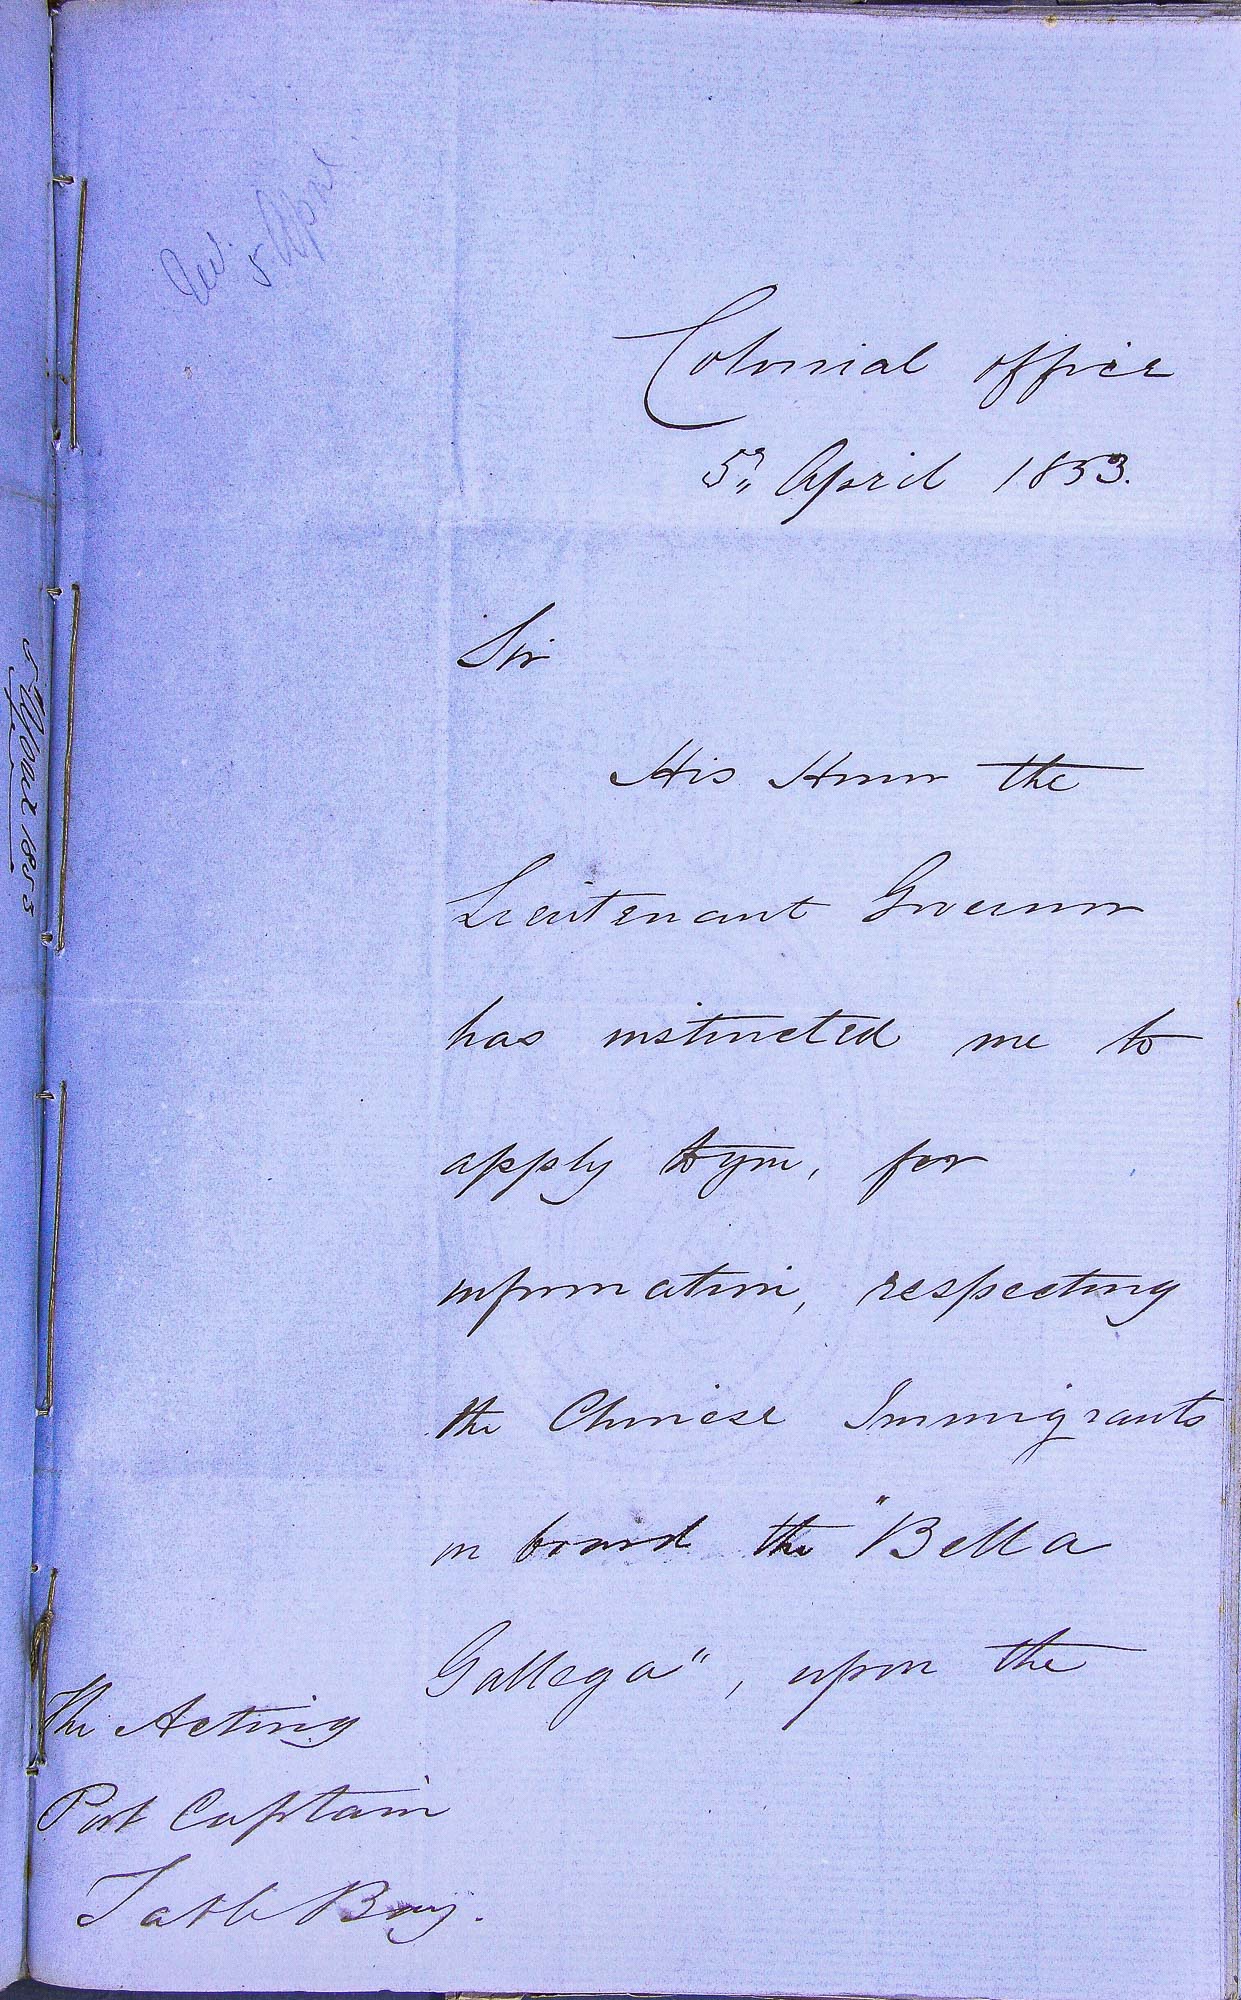 5 April
Colonial office
5" April 1853.
Sir
His Honor the
Lieutenant Governor
has instructed me to
apply to you, for
information, respecting
the Chinese Immigrants
on board the "Bella
Gallega", upon the
The Acting
Port Captain
Table Bay.
5 April 1853